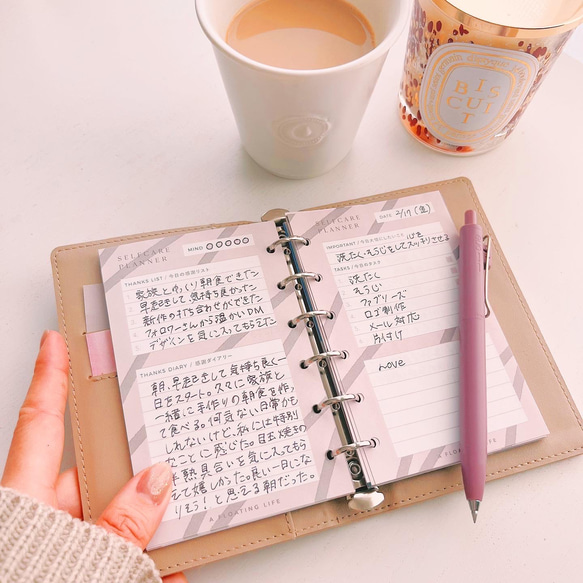 BISCUIT
SELFCARE
PLANNER
MIND
THANKS LIST / 今日の感謝リスト
家族とゆっくり朝食できた
早起きして気持ち良かった
新作の打ち合わせができた
フォロワーさんから温かいDM
デザインを気に入ってもらえた
THANKS DIARY / 感謝ダイアリー
朝、早起きして気持ち良く一
日をスタート。久々に家族と
一緒に手作りの朝食を作っ
て食べる。何気ない日常かも
しれないけど、私には特別
なことに感じた。目玉焼きの
半熟具合いを気に入ってもら
えて嬉しかった。良い一日にな
りそう！と思える朝だった。
A FLOATING LIFE
SELFCARE
PLANNER
DATE 2/19 (金)
IMPORTANT / 今日大切にしたいこと 心を
洗たく、そうじをしてスッキリさせる
TASKS / 今日のタスク
洗たく
そうじ
ファブリーズ
ロゴ制作
メール対応
片付け
Love
A FLOATING LIFE